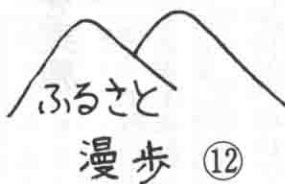 ふるさと
漫歩 ⑫